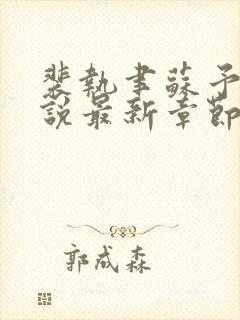 裴執聿蘇予
說最新章節
郭成森